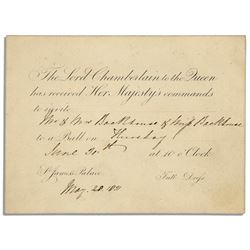 The Lord Chamberlain to the Queen
has received Her Majesty's commands
to invite
Mr & Mrs Backhouse & Miss Backhouse
to a Ball on Thursday
June at 10 o'Clock
St James's Palace. Full Dress
May. 20.